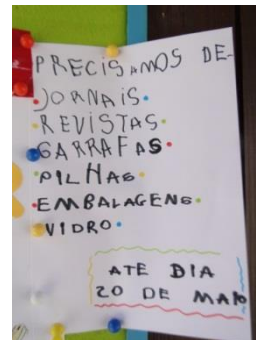 PRECISAMOS DE-
•JORNAIS•
•REVISTAS•
•GARRAFAS•
•PILHAS•
•EMBALAGENS•
•VIDRO•
ATE DIA
20 DE MAIO